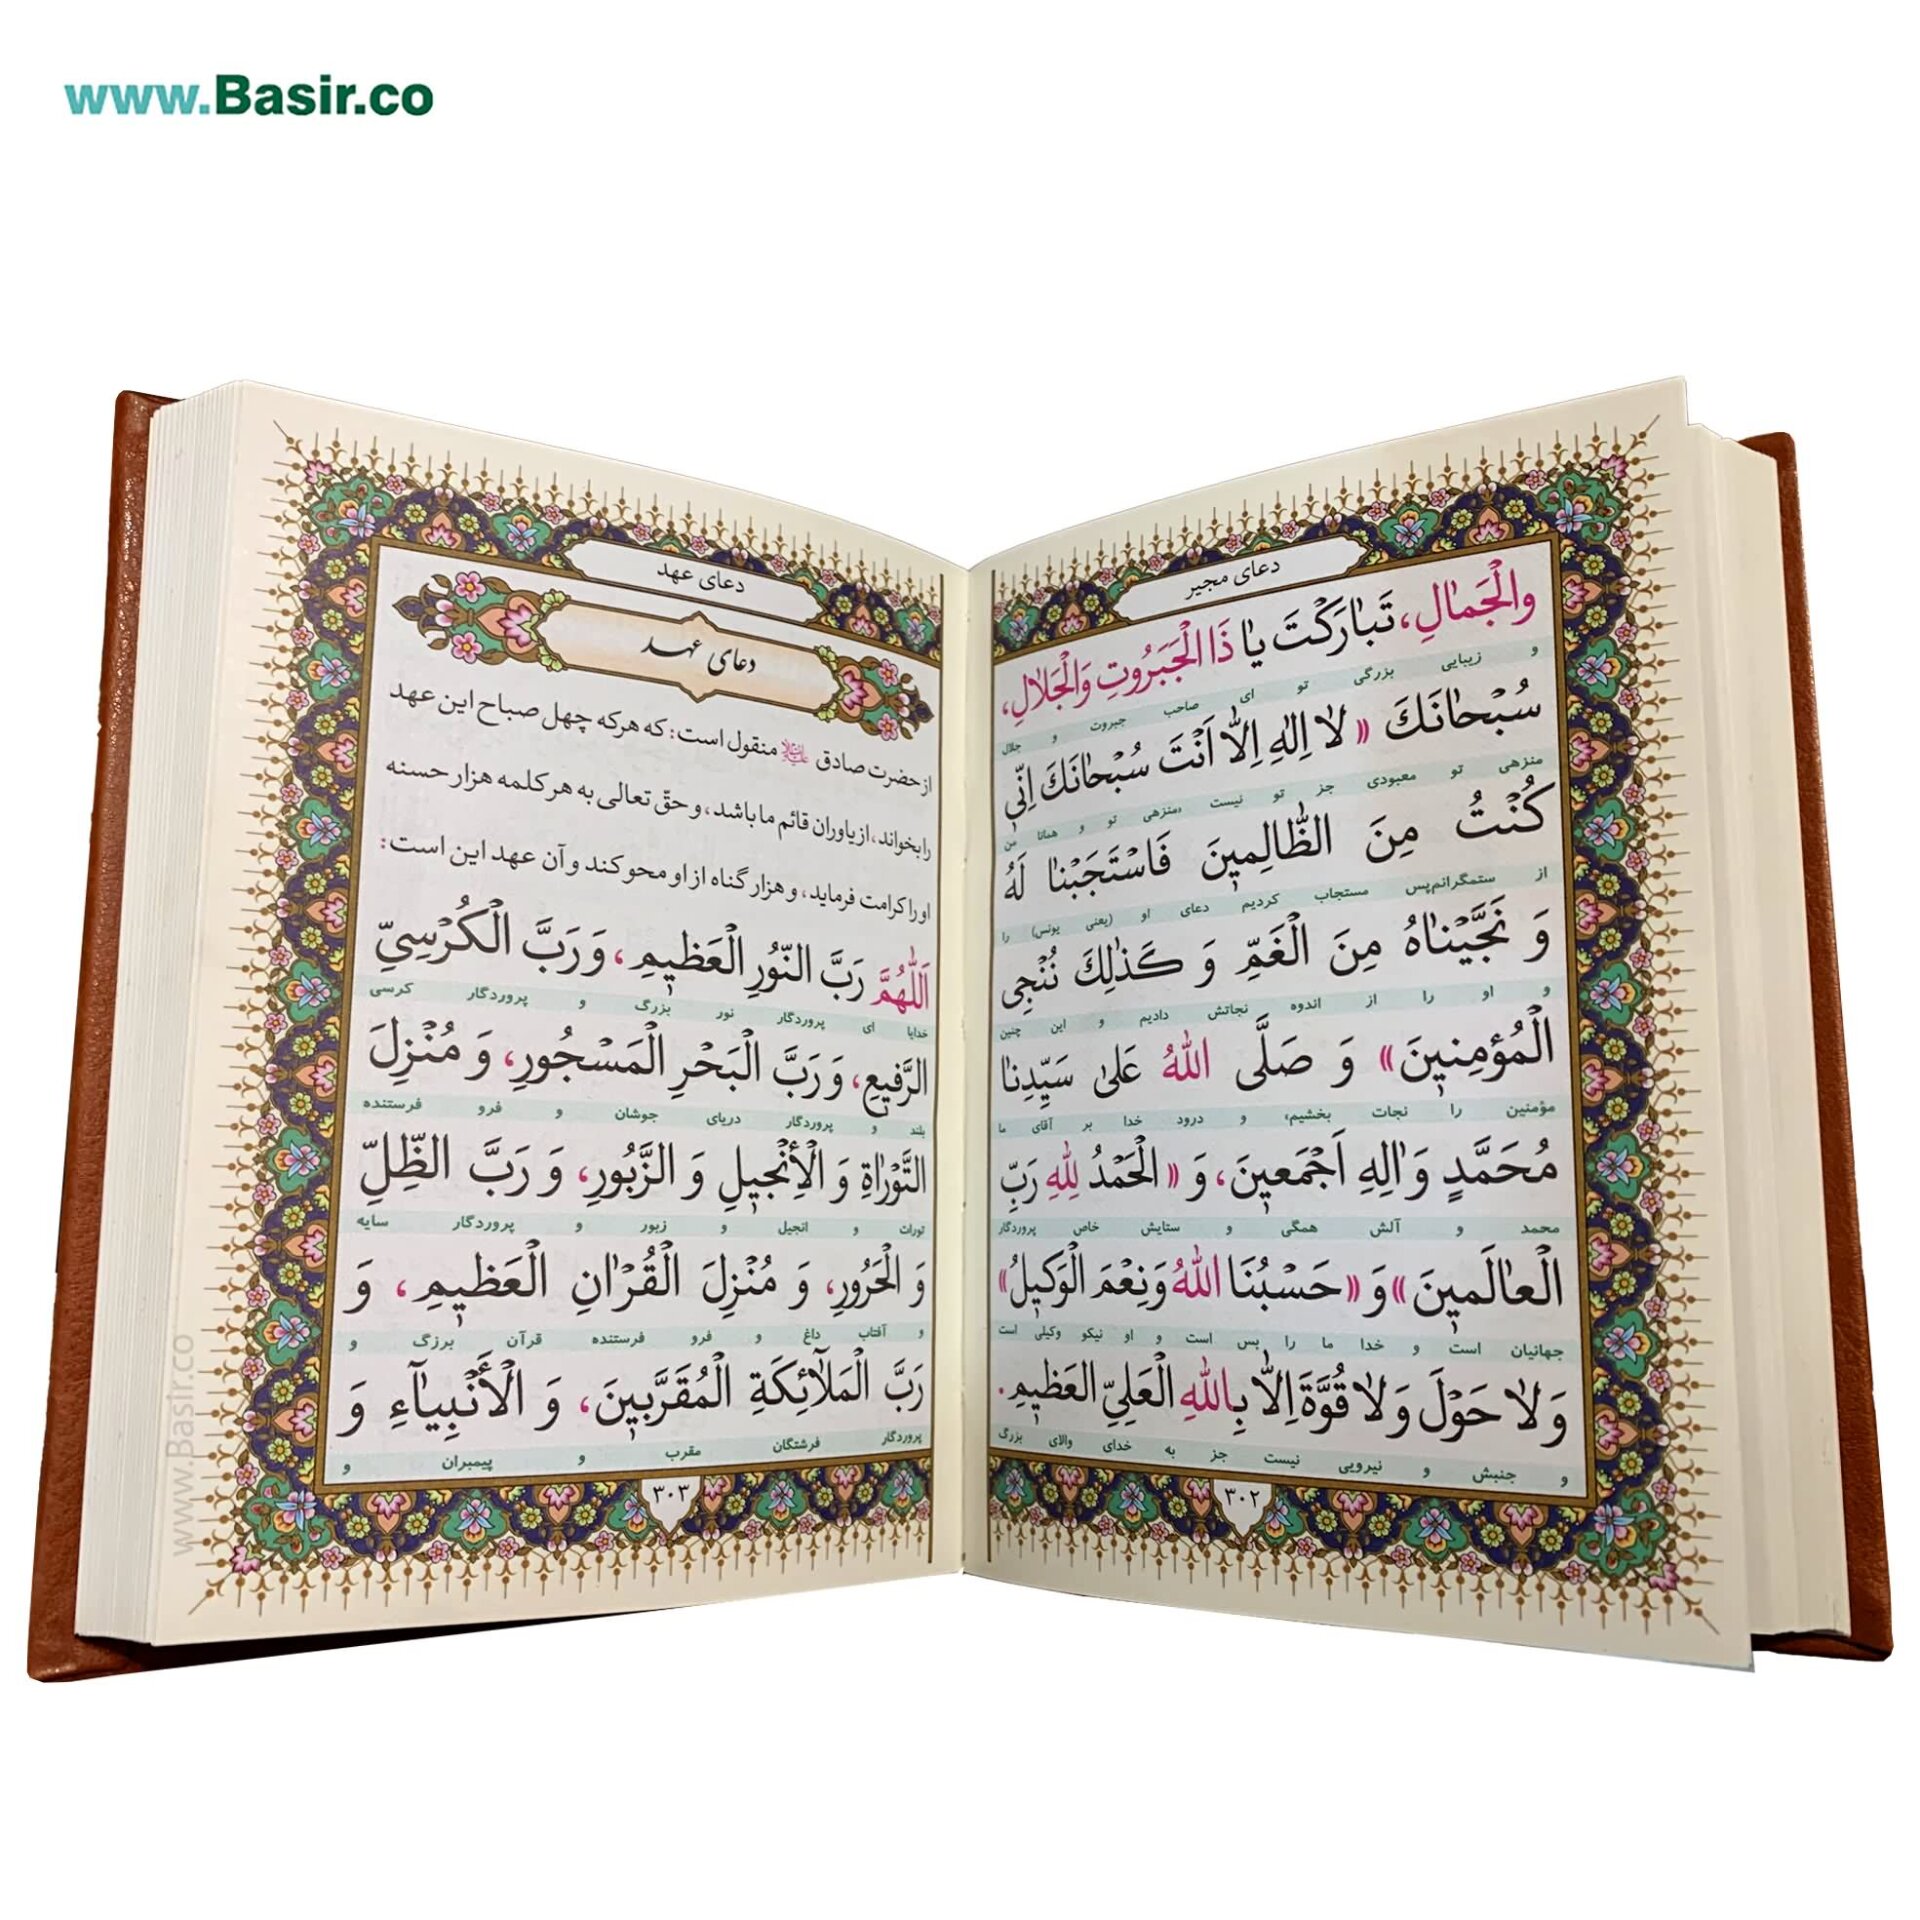 www.Basir.co
دعای مجیر
والْجَمالِ، تَبارَكْتَ يا ذَا الْجَبَرُوتِ وَالْجَلالِ،
و زیبایی بزرگی تو ای صاحب جبروت و جلال
سُبْحانَكَ « لا اِلهَ اِلّا اَنْتَ سُبْحانَكَ اِنّی
منزهی تو معبودی جز تو نیست منزهی تو و همانا من
كُنْتُ مِنَ الظّالِمینَ فَاسْتَجَبْنا لَهُ
از ستمگرانم پس مستجاب کردیم دعای او (یعنی یونس) را
وَ نَجَّیْناهُ مِنَ الْغَمِّ وَ كَذٰلِكَ نُنْجِی
و او را از اندوه نجاتش دادیم و این چنین
الْمُؤمِنینَ» وَ صَلَّی اللهُ عَلیٰ سَیِّدِنا
مؤمنین را نجات بخشیم، و درود خدا بر آقای ما
مُحَمَّدٍ وَ الِهِ اَجْمَعینَ، وَ « الْحَمْدُ لِلهِ رَبِّ
محمد و آلش همگی و ستایش خاص پروردگار
الْعالَمینَ» وَ « حَسْبُنَا اللهُ وَ نِعْمَ الْوَکیلُ»
جهانیان است و خدا ما را بس است و او نیکو وکیلی است
وَ لا حَوْلَ وَ لا قُوَّةَ اِلّا بِاللهِ الْعَلِیِّ الْعَظیمِ.
و جنبش و نیرویی نیست جز به خدای والای بزرگ
۳۰۲
دعای عهد
دعای عهد
از حضرت صادق علیه‌السلام منقول است: که هر که چهل صباح این عهد
را بخواند، از یاوران قائم ما باشد، و حقّ تعالی به هر کلمه هزار حسنه
او را کرامت فرماید، و هزار گناه از او محو کند و آن عهد این است:
اَللّهُمَّ رَبَّ النّورِ الْعَظیمِ، وَ رَبَّ الْکُرْسِیِّ
خدایا ای پروردگار نور بزرگ و پروردگار کرسی
الرَّفیعِ، وَ رَبَّ الْبَحْرِ الْمَسْجُورِ، وَ مُنْزِلَ
بلند و پروردگار دریای جوشان و فرو فرستنده
التَّوْراةِ وَ الْأِنْجیلِ وَ الزَّبُورِ، وَ رَبَّ الظِّلِّ
تورات و انجیل و زبور و پروردگار سایه
وَ الْحَرُورِ، وَ مُنْزِلَ الْقُرْانِ الْعَظیمِ، وَ
و آفتاب داغ و فرو فرستنده قرآن بزرگ و
رَبَّ الْمَلآئِكَةِ الْمُقَرَّبینَ، وَ الْأَنْبِیآءِ وَ
پروردگار فرشتگان مقرب و پیمبران و
۳۰۳
www.Basir.co